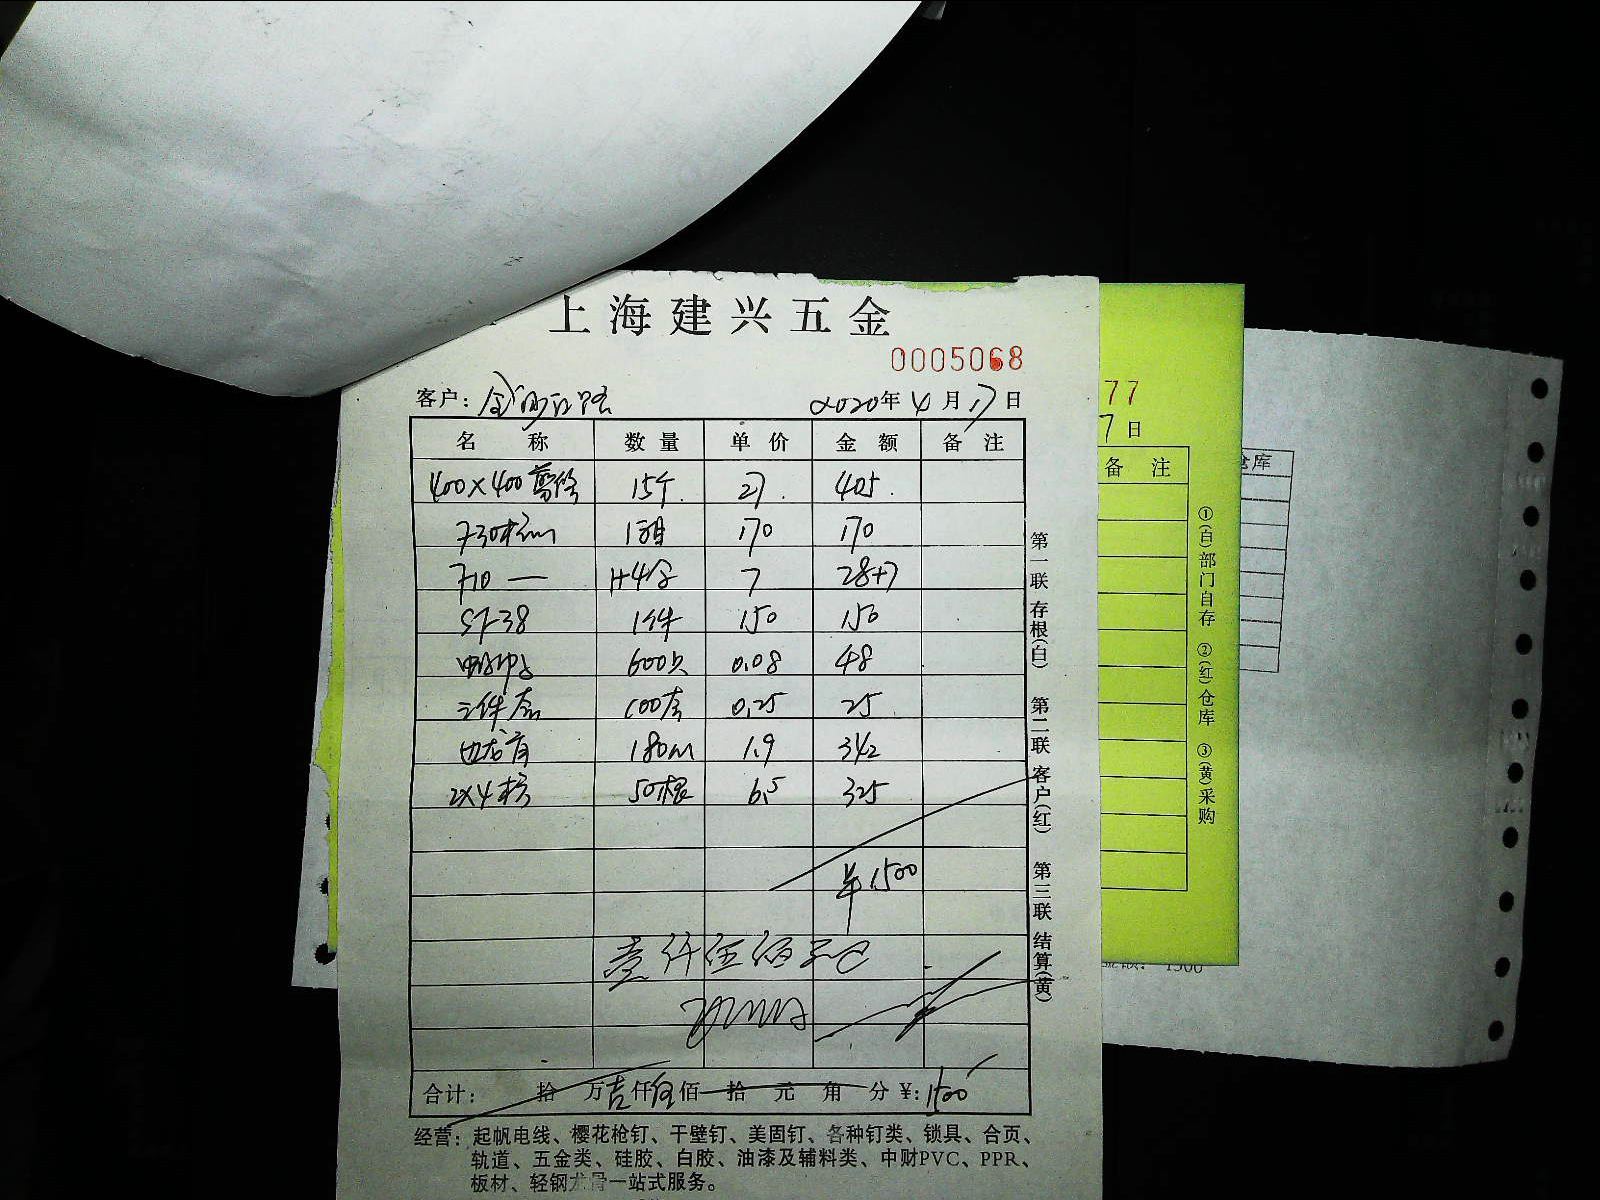 上海建兴五金
0005068
客户: 2020年4月17日
名 称 数 量 单 价 金 额 备 注
400×400 15个 27 405
730 1组 170 170
710 — 1+4 7 28+7
ST38 1件 150 150
600只 0.08 48
三件套 100套 0.25 25
边龙骨 180m 1.9 342
2×4 50根 6.5 325
¥1500
壹仟伍佰元
合计: 拾 万 壹 仟 伍 佰 拾 元 角 分 ¥: 1500
经营: 起帆电线、樱花枪钉、干壁钉、美固钉、各种钉类、锁具、合页、
轨道、五金类、硅胶、白胶、油漆及辅料类、中财PVC、PPR、
板材、轻钢龙骨一站式服务。
第一联 存根(白) 第二联 客户(红) 第三联 结算(黄)
77
7日
备 注
①(白)部门自存 ②(红)仓库 ③(黄)采购
仓库
1500